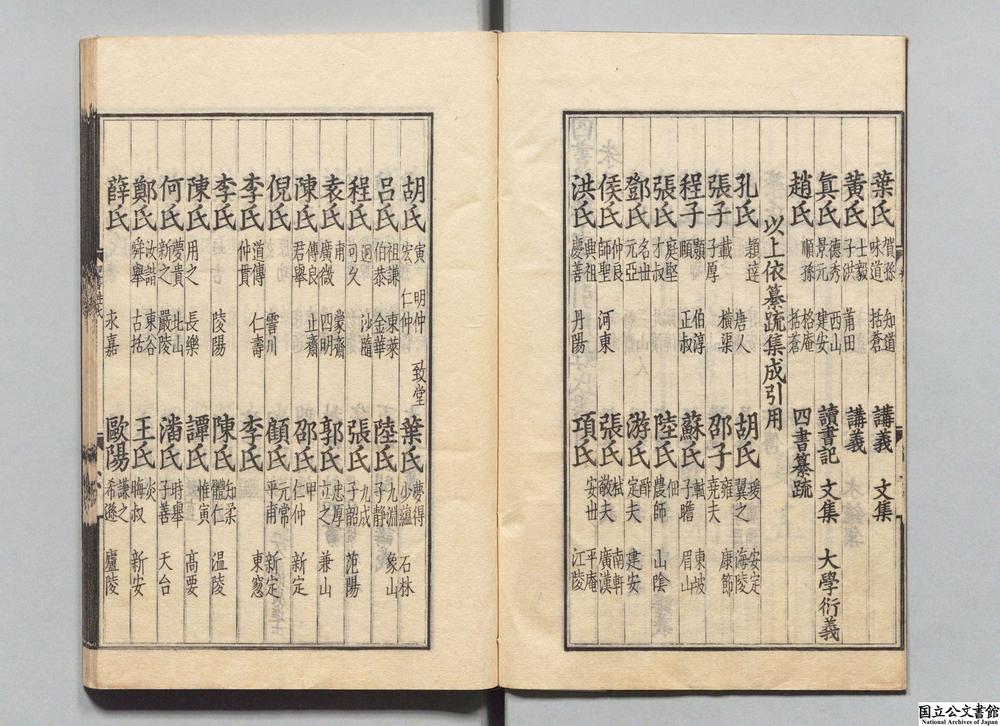 葉氏 賀孫 味道 知道 括蒼 講義 文集
黃氏 士毅 子洪 莆田 講義
真氏 德秀 景元 西山 建安 讀書記 文集 大學衍義
趙氏 順孫 格庵 括蒼 四書纂疏
以上依纂疏集成引用
孔氏 穎達 唐人 胡氏 瑗 翼之 安定 海陵
張子 載 子厚 橫渠 邵子 雍 堯夫 康節
程子 顥 伯淳 頤 正叔 蘇氏 軾 子瞻 東坡 眉山
張氏 庭堅 才叔 陸氏 佃 農師 山陰
鄧氏 名世 元亞 游氏 酢 定夫 建安
侯氏 仲良 師聖 河東 張氏 栻 敬夫 南軒 廣漢
洪氏 興祖 慶善 丹陽 項氏 安世 平庵 江陵
胡氏 寅 明仲 致堂 宏 仁仲 葉氏 夢得 少蘊 石林
呂氏 祖謙 伯恭 東萊 金華 陸氏 九淵 子靜 象山
程氏 迥 可久 沙隨 張氏 九成 子韶 范陽
袁氏 甫 廣微 蒙齋 四明 郭氏 忠厚 立之 兼山
陳氏 傅良 君舉 止齋 邵氏 甲 仁仲 新定
倪氏 霅川 顧氏 元常 平甫 新定
李氏 道傳 仲貫 仁壽 李氏 東窓
李氏 陵陽 陳氏 知柔 體仁 温陵
陳氏 用之 長樂 譚氏 惟寅 高要
何氏 夢貴 新之 北山 嚴陵 潘氏 時舉 子善 天台
鄭氏 汝諧 舜舉 東谷 古括 王氏 炎 晦叔 新安
薛氏 永嘉 歐陽氏 謙之 希遜 廬陵
国立公文書館
National Archives of Japan